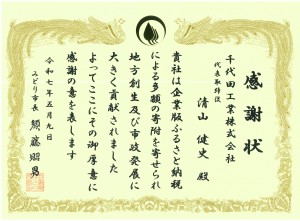 感謝状
千代田工業株式会社
代表取締役
清山健史殿
貴社は企業版ふるさと納税
による多額の寄附を寄せられ
地方創生及び市政発展に
大きく貢献されました
よってここにその御厚意に
感謝の意を表します
令和七年五月九日
みどり市長
須藤昭男